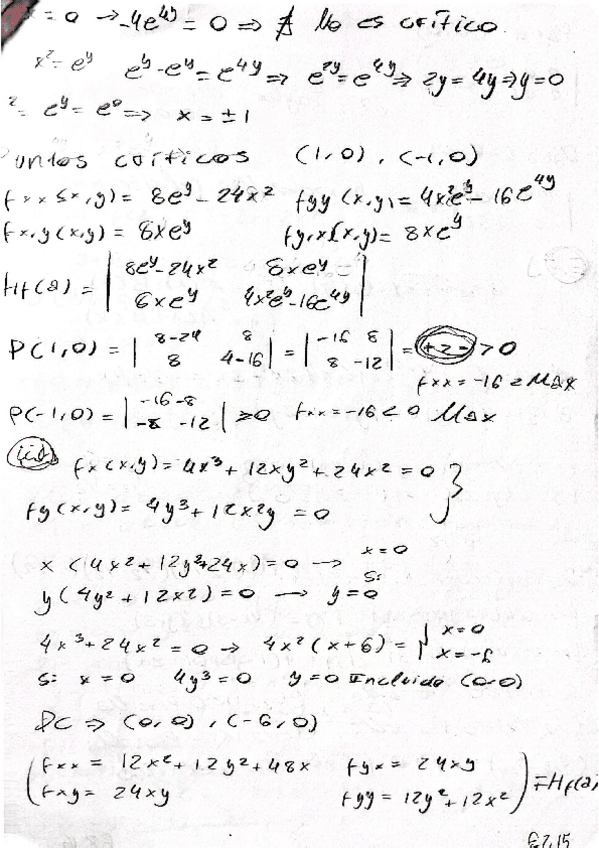 x = 0 → -4e^{4y} = 0 ⇒ ∄ No es crítico.
x² = e^y   e^y · e^y = e^{4y} ⇒ e^{2y} = e^{4y} ⇒ 2y = 4y ⇒ y = 0
² = e^y = e^0 ⇒ x = ±1
Puntos críticos (1,0), (-1,0)
fxx(x,y) = 8e^y - 24x²   fyy(x,y) = 4x²e^y - 16e^{4y}
fx,y(x,y) = 8xe^y   fy,x(x,y) = 8xe^y
Hf(a) = | 8e^y - 24x²   8xe^y |
| 8xe^y   4x²e^y - 16e^{4y} |
P(1,0) = | 8-24   8 | = | -16   8 | = > 0
| 8   4-16 |   | 8   -12 |
fxx = -16 = Max
P(-1,0) = | -16 -8 | > 0   fxx = -16 < 0 Max
| -8 -12 |
fx(x,y) = 4x³ + 12xy² + 24x² = 0 }
fy(x,y) = 4y³ + 12x²y = 0
x (4x² + 12y² + 24x) = 0 → x = 0
Si
y (4y² + 12x²) = 0 → y = 0
4x³ + 24x² = 0 → 4x² (x+6) = { x = 0
x = -6
Si x = 0   4y³ = 0   y = 0 Incluido (0,0)
PC ⇒ (0,0), (-6,0)
( fxx = 12x² + 12y² + 48x   fyx = 24xy
fxy = 24xy   fyy = 12y² + 12x² ) = Hf(a)